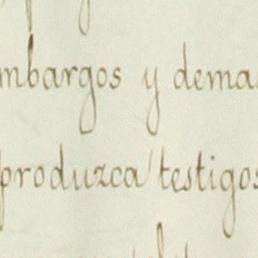 mbargos y demas
produzca testigos